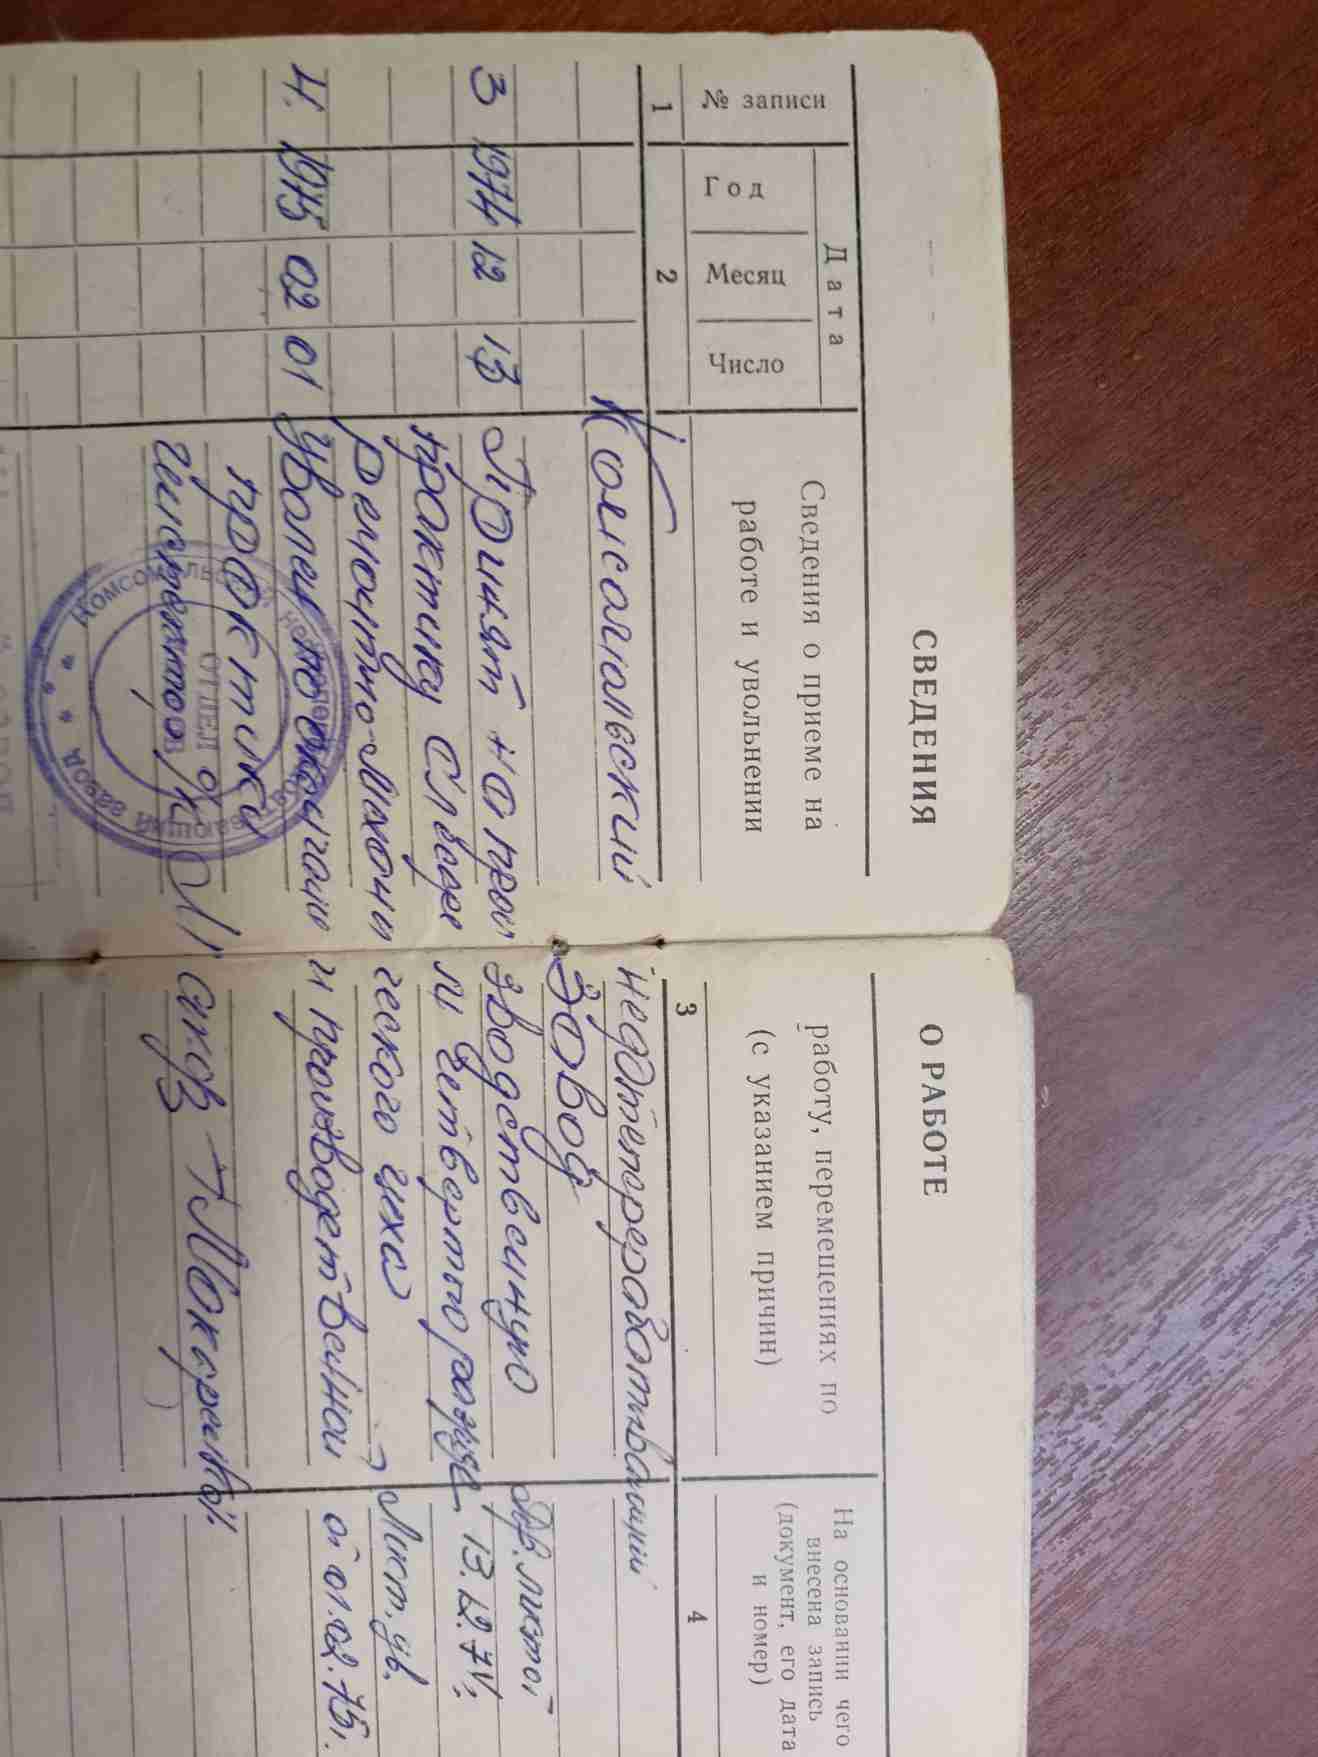 СВЕДЕНИЯ О РАБОТЕ
№ записи
Дата
Год
Месяц
Число
Сведения о приеме на работу, перемещениях по
работе и увольнении (с указанием причин)
На основании чего
внесена запись
(документ, его дата
и номер)
1 2 3 4
Комсомольский нефтеперерабатывающий
завод
3 1974 12 13 Принят на производственную Пр. лист от
практику слесарем четвертого разряда 13.12.74г.
Ремонтно-механического цеха
Лист. ув.
4. 1975 02 01 Уволен по окончании производственной от 01.02.75г.
практики
Инспектор о/к
КОМСОМОЛЬСКИЙ НЕФТЕПЕРЕРАБАТЫВАЮЩИЙ ЗАВОД
ОТДЕЛ
КАДРОВ